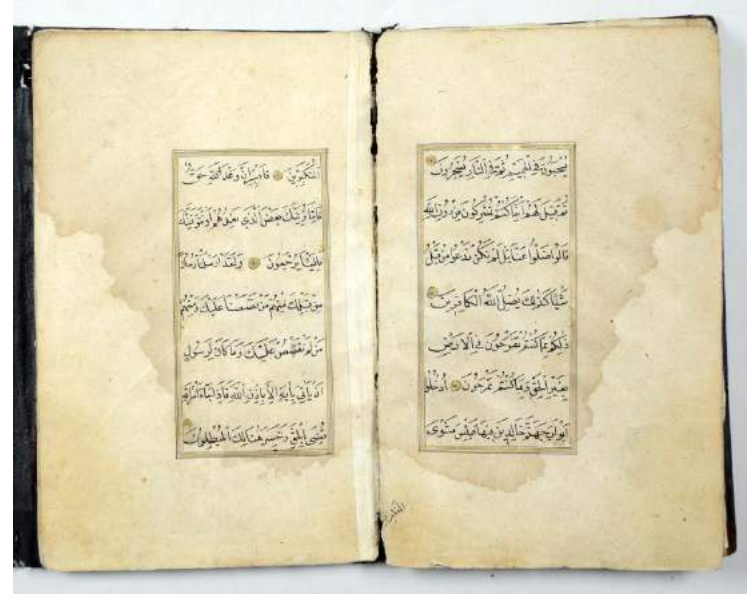 يُسْحَبُونَ فِي الْحَمِيمِ ثُمَّ فِي النَّارِ يُسْجَرُونَ
ثُمَّ قِيلَ لَهُمْ أَيْنَمَا كُنْتُمْ تُشْرِكُونَ مِنْ دُونِ اللَّهِ
قَالُوا ضَلُّوا عَنَّا بَلْ لَمْ نَكُنْ نَدْعُوا مِنْ قَبْلُ
شَيْئًا كَذَلِكَ يُضِلُّ اللَّهُ الْكَافِرِينَ
ذَلِكُمْ بِمَا كُنْتُمْ تَفْرَحُونَ فِي الْأَرْضِ
بِغَيْرِ الْحَقِّ وَبِمَا كُنْتُمْ تَمْرَحُونَ أُدْخُلُوا
أَبْوَابَ جَهَنَّمَ خَالِدِينَ فِيهَا فَبِئْسَ مَثْوَى
المتكبرين
الْمُتَكَبِّرِينَ فَاصْبِرْ إِنَّ وَعْدَ اللَّهِ حَقٌّ
فَإِمَّا نُرِيَنَّكَ بَعْضَ الَّذِي نَعِدُهُمْ أَوْ نَتَوَفَّيَنَّكَ
فَإِلَيْنَا يُرْجَعُونَ وَلَقَدْ أَرْسَلْنَا رُسُلًا
مِنْ قَبْلِكَ مِنْهُمْ مَنْ قَصَصْنَا عَلَيْكَ وَمِنْهُمْ
مَنْ لَمْ نَقْصُصْ عَلَيْكَ وَمَا كَانَ لِرَسُولٍ
أَنْ يَأْتِيَ بِآيَةٍ إِلَّا بِإِذْنِ اللَّهِ فَإِذَا جَاءَ أَمْرُ اللَّهِ
قُضِيَ بِالْحَقِّ وَخَسِرَ هُنَالِكَ الْمُبْطِلُونَ